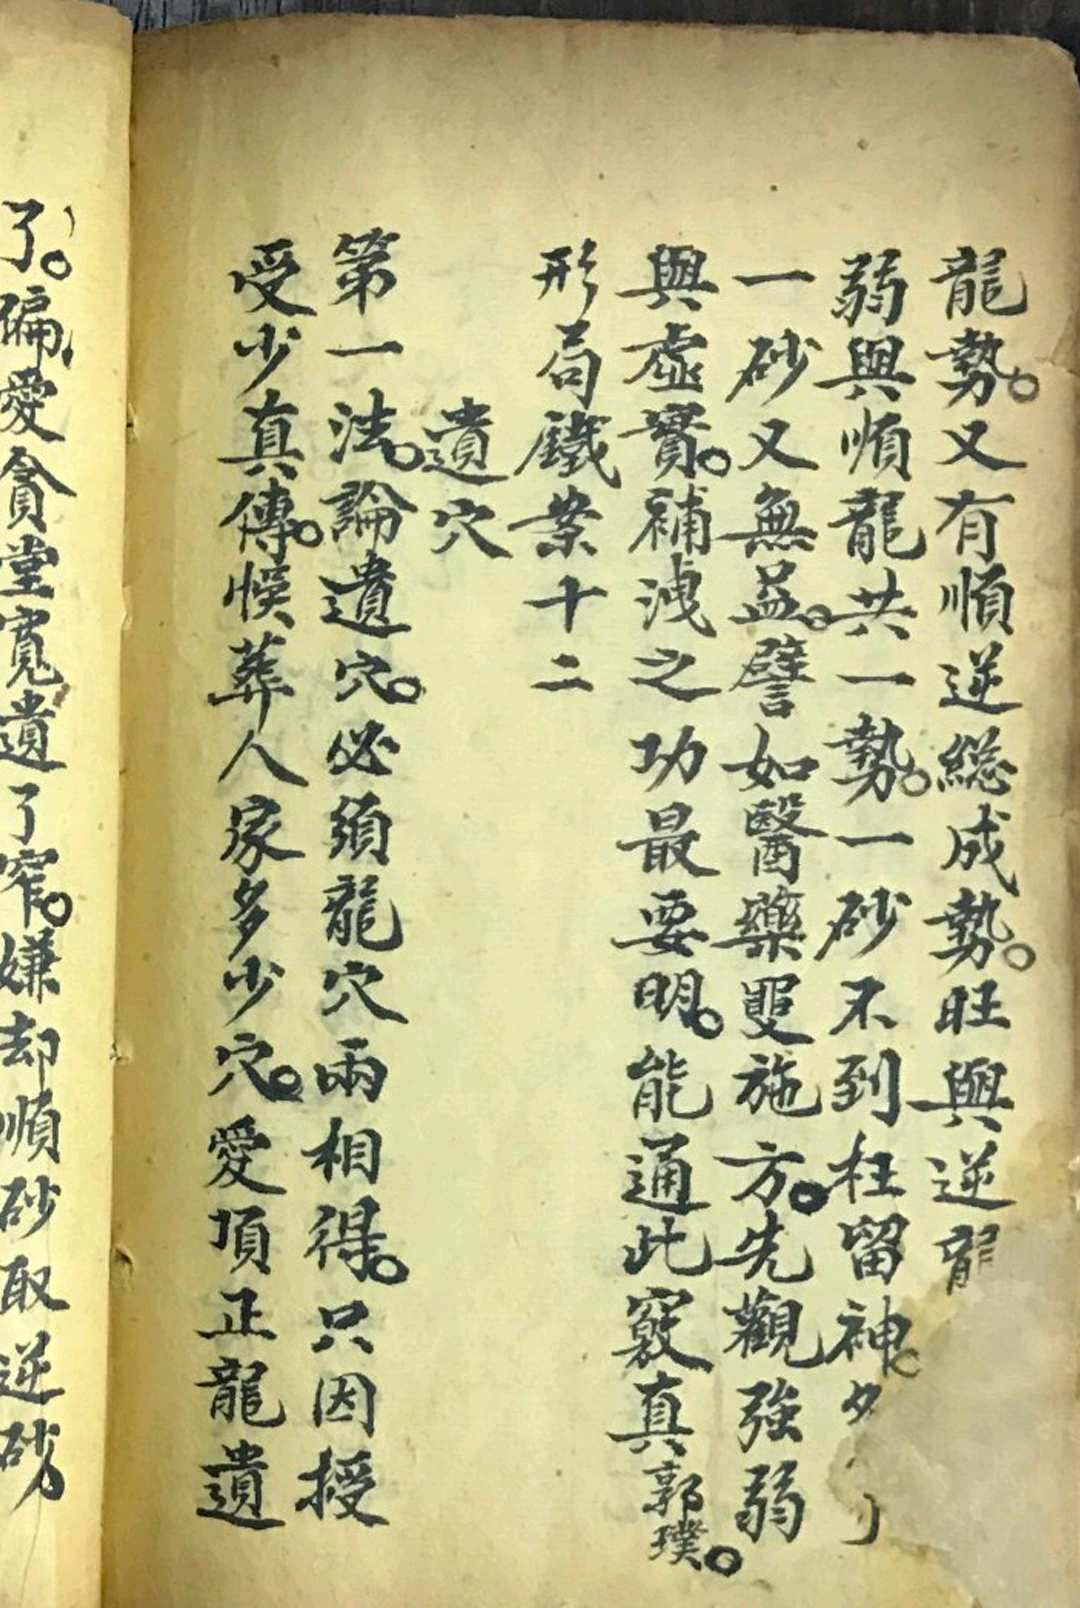 龍勢。又有順逆總成勢。旺與逆龍
弱與順龍共一勢。一砂不到枉留神。
一砂又無益。譬如醫藥雙施方。先觀強弱
與虛實。補洩之功最要明。能通此竅真郭璞。
形局鐵業十二
遺穴
第一法。論遺穴。必須龍穴兩相得。只因授
受少真傳。悞葬人家多少穴。愛項正龍遺
了。偏愛貪堂寬遺了窄。嫌却順砂取逆砂